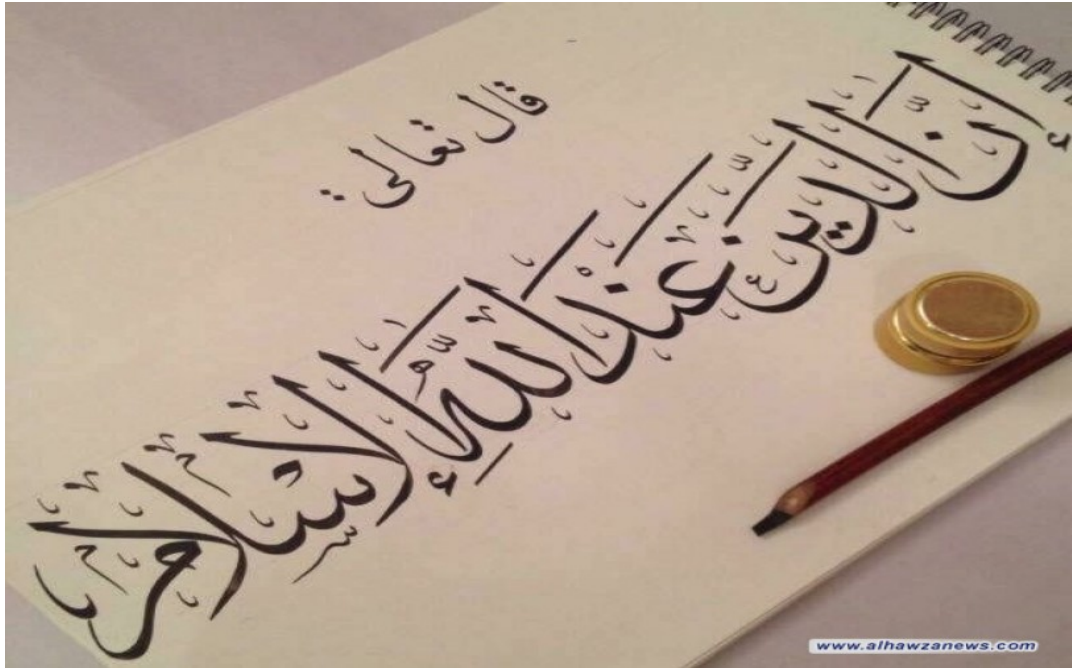 قال تعالى
إنَّ الدِّينَ عِنْدَ اللَّهِ الإِسْلَامُ
www.alhawzanews.com